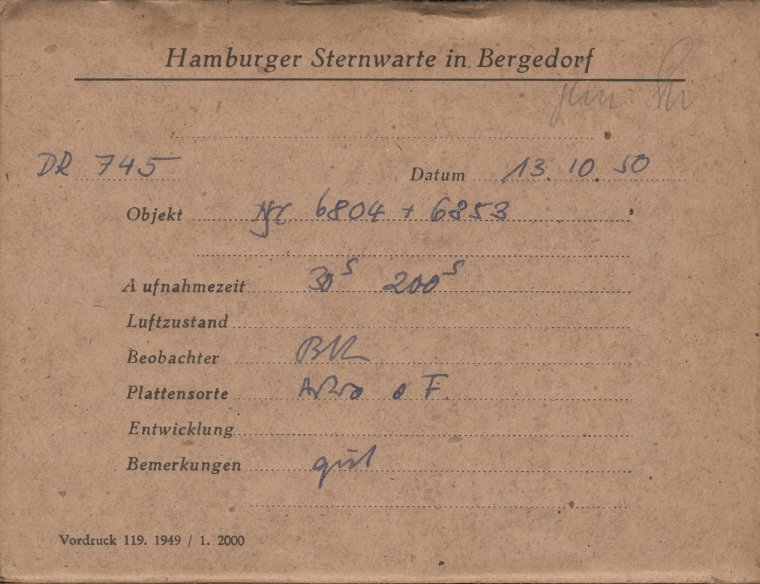 Hamburger Sternwarte in Bergedorf
DR 745
Datum 13. 10. 50
Objekt 6804 + 6853
Aufnahmezeit 30s 200s
Luftzustand
Beobachter
Plattensorte Astro o F.
Entwicklung
Bemerkungen gut
Vordruck 119. 1949 / 1. 2000